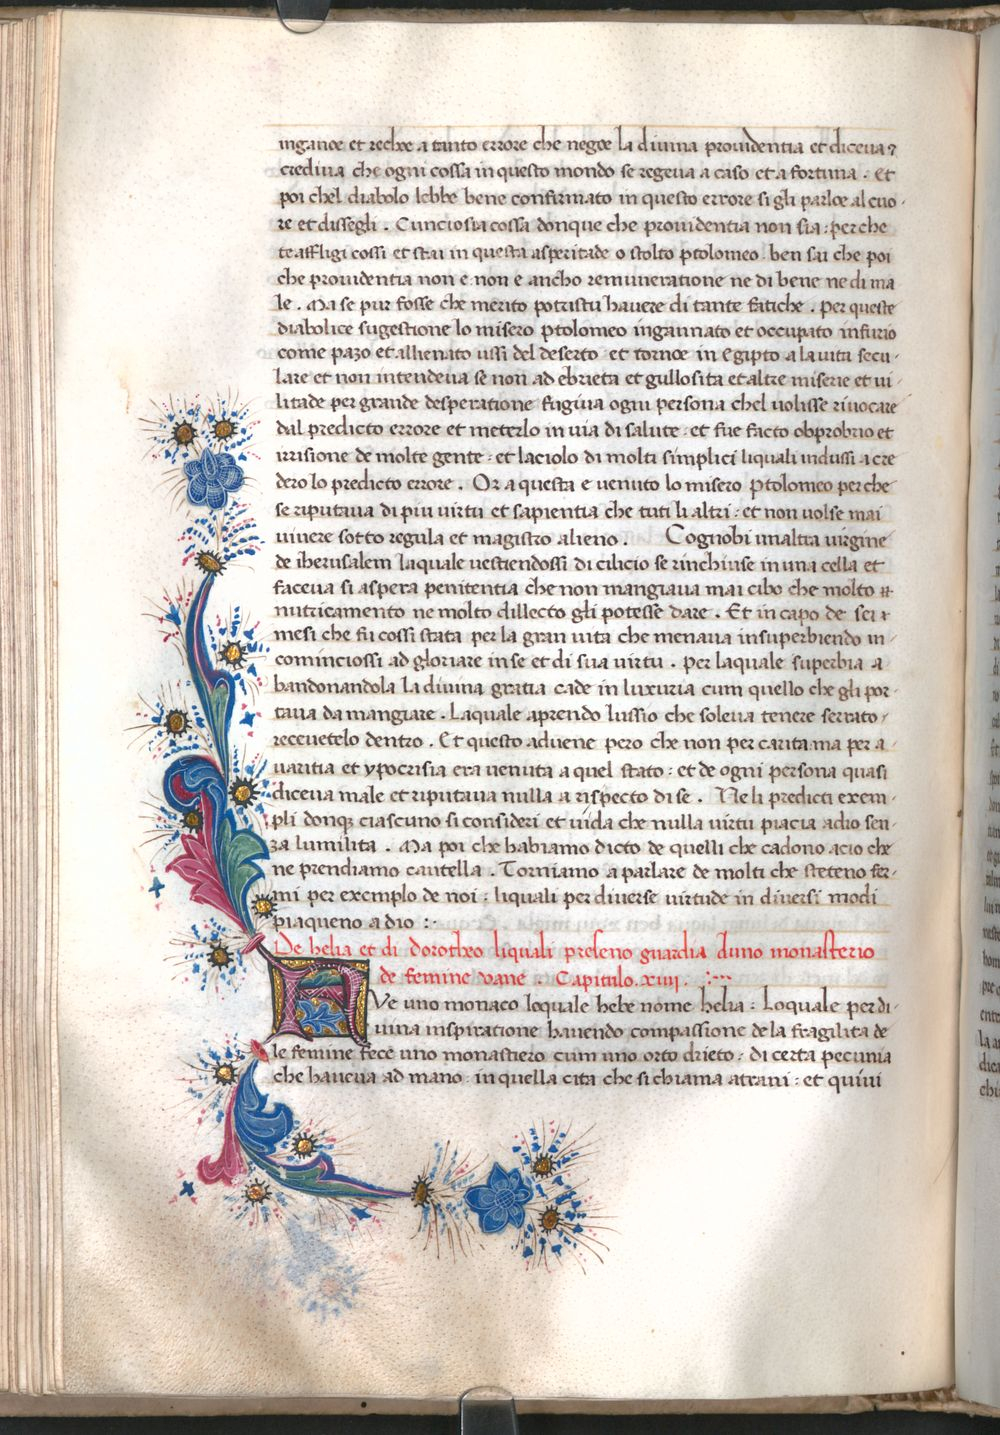 inganoe et rechoe a tanto errore che negoe la diuina prouidentia et diceua ⁊
crediua che ogni cossa in questo mondo se regeua a caso et a fortuna . Et
poi chel diabolo lebbe bene confirmato in questo errore si gli parloe al cuo
re et dissegli . Cunciosia cossa donque che prouidentia non sia : perche
te affligi cossi et stai in questa asperitade o stolto ptolomeo . ben sai che poi
che prouidentia non e non e ancho remuneratione ne di bene ne di ma
le . Ma se pur fosse che merito potristu hauere di tante fatiche . Per queste
diabolice sugestione lo misero ptolomeo ingannato et occupato infurio
come pazo et allienato ussi del deserto et tornoe in Egipto a la uita secu
lare et non intendeua se non ad ebrieta et gullosita et altre miserie et ui
litade per grande desperatione fugiua ogni persona chel uolisse riuocare
dal predicto errore et meterlo in uia di salute : et fue facto obprobrio et
irrisione de molte gente : et laciolo di molti simplici liquali indussi a cre
dero lo predicto errore . Or a questa e uenuto lo misero ptolomeo perche
se riputaua di piu uirtu et sapientia che tuti li altri : et non uolse mai
uiuere sotto regula et magistro alieno . Cognobi unaltra uirgine
de iherusalem laquale uestiendossi di cilicio se rinchiuse in una cella et
faceua si aspera penitentia che non mangiaua mai cibo che molto
nutricamento ne molto dillecto gli potesse dare . Et in capo de sei
mesi che fu cossi stata per la gran uita che menaua insuperbiendo in
cominciossi ad gloriare in se et di sua uirtu . Per laquale superbia a
bandonandola la diuina gratia cade in luxuria cum quello che gli por
taua da mangiare . Laquale aprendo lussio che soleua tenere serrato
receuetelo dentro . Et questo aduene pero che non per carita ma per a
uaritia et ypocrisia era uenuta a quel stato : et de ogni persona quasi
diceua male et riputaua nulla a rispecto di se . Neli predicti exem
pli donqꝫ ciascuno si consideri et uida che nulla uirtu piacia adio sen
za lumilita . Ma poi che habiamo dicto de quelli che cadono acio che
ne prendiamo cautella . Torniamo a parlare de molti che steteno fer
mi per exemplo de noi : liquali per diuerse uirtude in diuersi modi
piaqueno a dio :
De helia et di dorotheo liquali preseno guardia duno monasterio
de femine uane . Capitulo . xviii .
FVe uno monaco loquale hebe nome helia : Loquale per di
uina inspiratione hauendo compassione de la fragilita de
le femine fece uno monastiero cum uno orto drieto : di certa pecunia
che haueua ad mano : in quella cita che si chiama atrani : et quiui